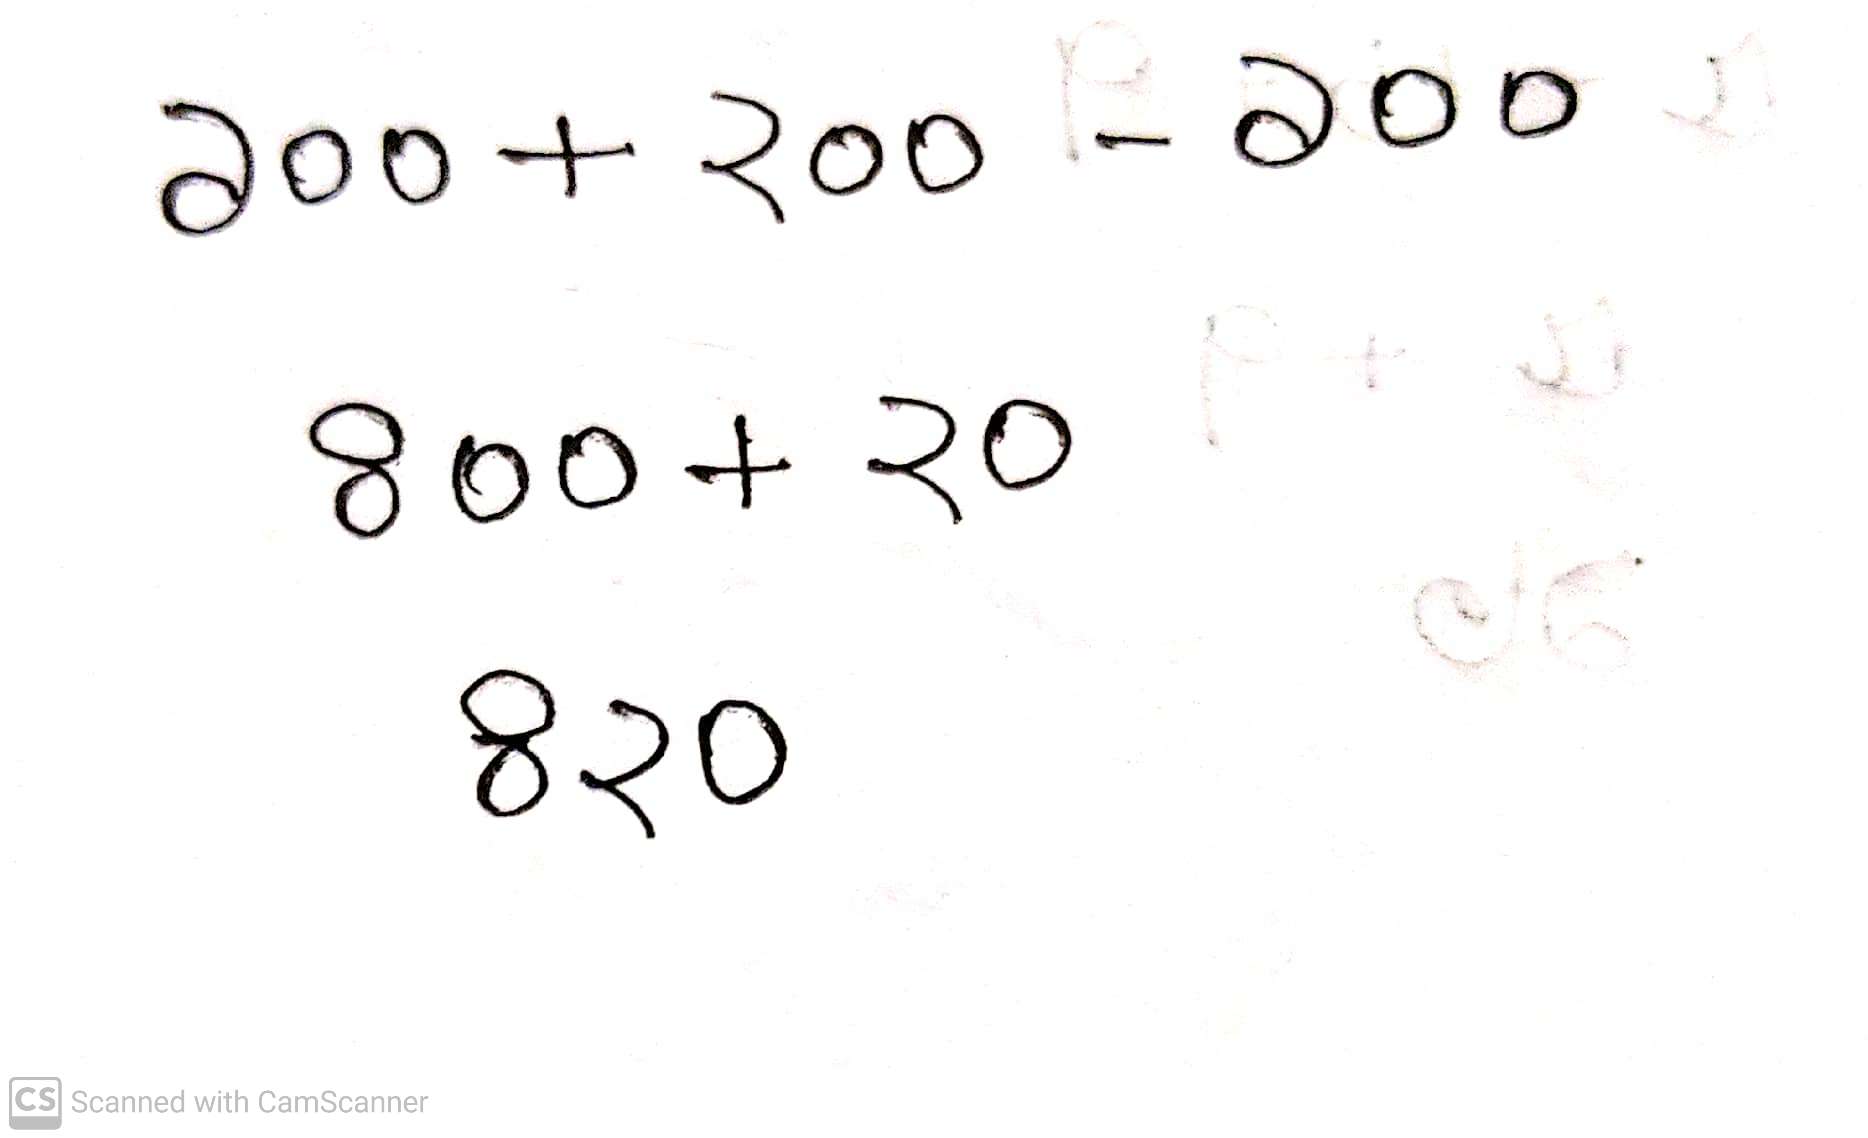 ১০০ + ২০০ - ১০০
৪০০ + ২০
৪২০
CS Scanned with CamScanner